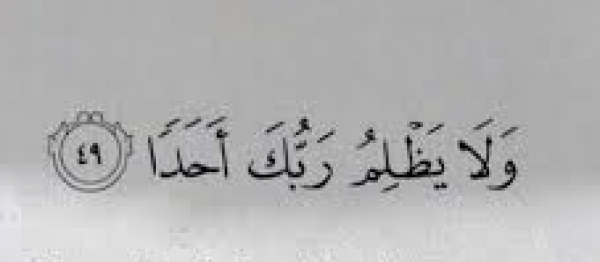 وَلَا يَظْلِمُ رَبُّكَ أَحَدًا ٤٩